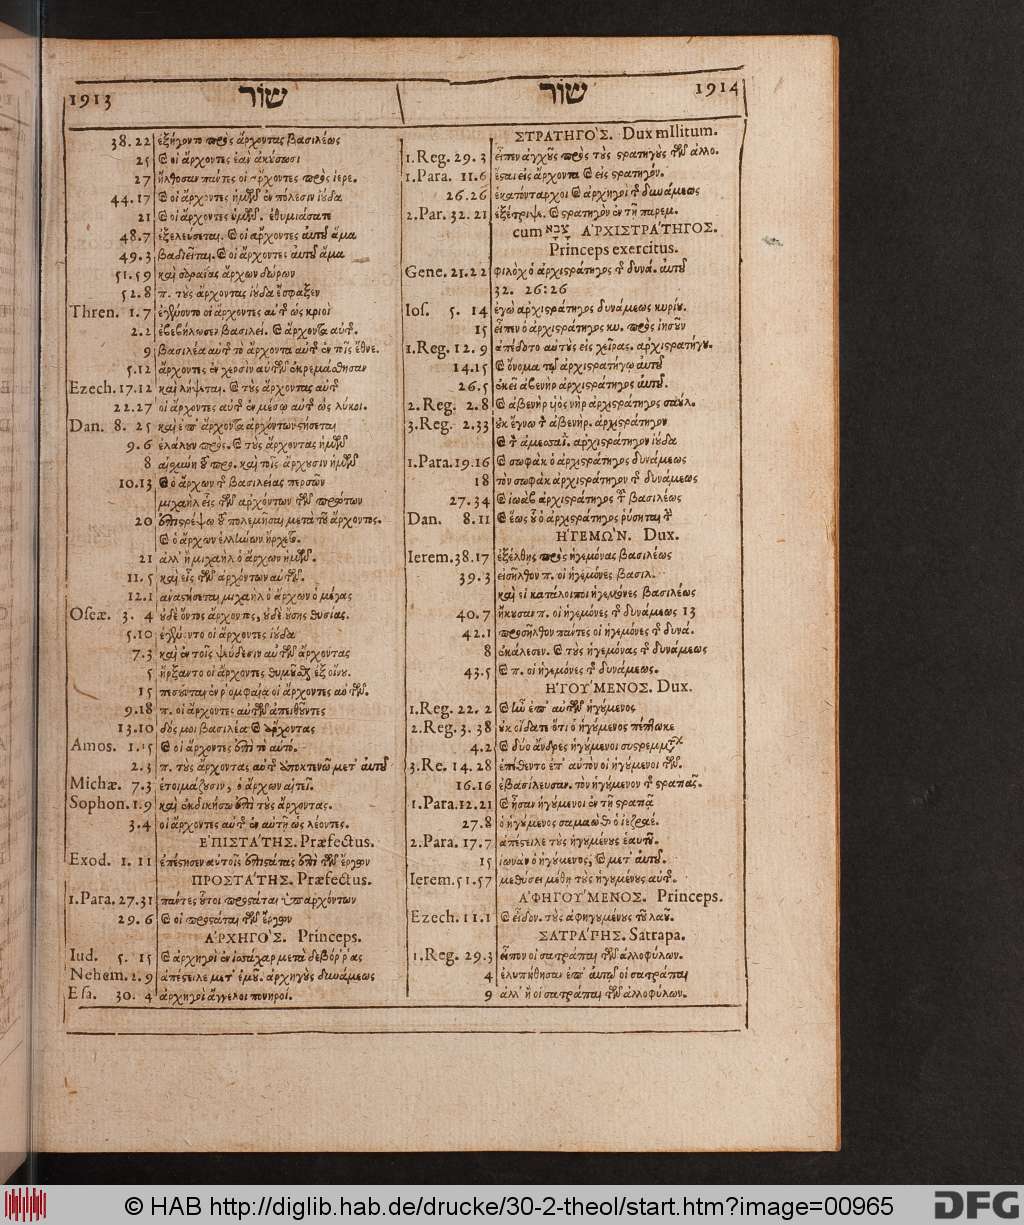 1913 שור
38.22 ἐξήγοντο πρὸς ἄρχοντας βασιλέως
25 καὶ οἱ ἄρχοντες ἐὰν ἀκούσωσι
27 ἤλθοσαν πάντες οἱ ἄρχοντες πρὸς ἱερε.
44.17 καὶ οἱ ἄρχοντες ἡμῶν ἐν πόλεσιν ἰούδα
21 καὶ οἱ ἄρχοντες ὑμῶν. ἐθυμιάσατε
48.7 ἐξελεύσεται. καὶ οἱ ἄρχοντες αὐτοῦ ἅμα
49.3 βαδιεῖται. καὶ οἱ ἄρχοντες αὐτοῦ ἅμα
51.59 καὶ σαραίας ἄρχων δώρων
52.8 π. τοὺς ἄρχοντας ἰούδα ἔσφαξεν
Thren. 1.7 ἐγένοντο οἱ ἄρχοντες αὐτῆς ὡς κριοὶ
2.2 ἐβεβήλωσεν βασιλεῖ. καὶ ἄρχοντα αὐτῆς.
9 βασιλέα αὐτῆς τὸ ἄρχοντα αὐτῆς ἐν τοῖς ἔθνε.
5.12 ἄρχοντες ἐν χερσὶν αὐτῶν ἐκρεμάσθησαν
Ezech. 17.12 καὶ λήψεται. καὶ τοὺς ἄρχοντας αὐτῆς
22.27 οἱ ἄρχοντες αὐτῆς ἐν μέσῳ αὐτῆς ὡς λύκοι.
Dan. 8. 25 καὶ ἐπ' ἄρχοντα ἀρχόντων στήσεται
9.6 ἐλάλουν πρὸς. καὶ τοὺς ἄρχοντας ἡμῶν
8 αἰσχύνη τοῦ προ. καὶ τοῖς ἄρχουσιν ἡμῶν
10.13 καὶ ὁ ἄρχων τῆς βασιλείας περσῶν
μιχαὴλ εἷς τῶν ἀρχόντων τῶν πρώτων
20 ἐπιστρέψω τοῦ πολεμῆσαι μετὰ τοῦ ἄρχοντος.
καὶ ὁ ἄρχων ἑλλήνων ἤρχετο.
21 ἀλλ' ἢ μιχαὴλ ὁ ἄρχων ἡμῶν.
11.5 καὶ εἷς τῶν ἀρχόντων αὐτῶν.
12.1 ἀναστήσεται μιχαὴλ ὁ ἄρχων ὁ μέγας
Oseæ. 3. 4 οὐδὲ ὄντος ἄρχοντος, οὐδὲ οὔσης θυσίας.
5.10 ἐγένοντο οἱ ἄρχοντες ἰούδα
7.3 καὶ ἐν τοῖς ψεύδεσιν αὐτῶν ἄρχοντας
5 ἤρξαντο οἱ ἄρχοντες θυμοῦσθαι ἐξ οἴνου.
15 πεσοῦνται ἐν ῥομφαίᾳ οἱ ἄρχοντες αὐτῶν.
9.18 π. οἱ ἄρχοντες αὐτῶν ἀπειθοῦντες
13.10 δός μοι βασιλέα καὶ ἄρχοντας
Amos. 1.15 καὶ οἱ ἄρχοντες ἐπὶ τὸ αὐτό.
2.3 π. τοὺς ἄρχοντας αὐτῆς ἀποκτενῶ μετ' αὐτοῦ
Michæ. 7.3 ἑτοιμάζουσιν, ὁ ἄρχων αἰτεῖ.
Sophon. 1.9 καὶ ἐκδικήσω ἐπὶ τοὺς ἄρχοντας.
3.4 οἱ ἄρχοντες αὐτῆς ἐν αὐτῇ ὡς λέοντες.
ἘΠΙΣΤΆΤΗΣ. Præfectus.
Exod. 1. 11 ἐπέστησεν αὐτοῖς ἐπιστάτας ἐπὶ τῶν ἔργων
ΠΡΟΣΤΆΤΗΣ. Præfectus.
1.Para. 27.31 πάντες οὗτοι προστάται ὑπαρχόντων
29.6 καὶ οἱ προστάται τῶν ἔργων
ἈΡΧΗΓῸΣ. Princeps.
Iud. 5. 15 καὶ ἀρχηγοὶ ἐν ἰσσάχαρ μετὰ δεβόρρας
Nehem. 2.9 ἀπέστειλε μετ' ἐμοῦ. ἀρχηγοὺς δυνάμεως
Esa. 30. 4 ἀρχηγοὶ ἄγγελοι πονηροί.
שור 1914
ΣΤΡΑΤΗΓῸΣ. Dux militum.
1.Reg. 29.3 εἶπεν ἀγχοῦς πρὸς τοὺς στρατηγοὺς τῶν ἀλλο.
1.Para. 11.6 ἔσται εἰς ἄρχοντα καὶ εἰς στρατηγόν.
26.26 ἑκατόνταρχοι καὶ ἀρχηγοὶ τῆς δυνάμεως
2.Par. 32.21 ἐξέτριψε. καὶ στρατηγὸν ἐν τῇ παρεμ.
cum צבא ἈΡΧΙΣΤΡΆΤΗΓΟΣ.
Princeps exercitus.
Gene. 21.22 φιλὸχ ὁ ἀρχιστράτηγος τῆς δυνά. αὐτοῦ
32. 26:26
Ios. 5. 14 ἐγὼ ἀρχιστράτηγος δυνάμεως κυρίου.
15 εἶπεν ὁ ἀρχιστράτηγος κυ. πρὸς ἰησοῦν
1.Reg. 12. 9 ἀπέδοτο αὐτοὺς εἰς χεῖρας. ἀρχιστρατήγου.
14.15 καὶ ὄνομα τῷ ἀρχιστρατήγῳ αὐτοῦ
26.5 ἐκεῖ ἀβενὴρ ἀρχιστράτηγος αὐτοῦ.
2.Reg. 2.8 καὶ ἀβενὴρ υἱὸς νὴρ ἀρχιστράτηγος σαούλ.
3.Reg. 2.33 οὐκ ἔγνω τὸν ἀβενὴρ. ἀρχιστράτηγον
καὶ τὸν ἀμεσσαΐ. ἀρχιστράτηγον ἰούδα
1.Para. 19.16 καὶ σωφὰκ ὁ ἀρχιστράτηγος δυνάμεως
18 τὸν σωφὰκ ἀρχιστράτηγον τῆς δυνάμεως
27.34 καὶ ἰωὰβ ἀρχιστράτηγος τοῦ βασιλέως
Dan. 8.11 καὶ ἕως οὗ ὁ ἀρχιστράτηγος ῥύσηται τὴν
ἩΓΕΜῺΝ. Dux.
Ierem. 38.17 ἐξέλθῃς πρὸς ἡγεμόνας βασιλέως
39.3 εἰσῆλθον π. οἱ ἡγεμόνες βασιλ.
καὶ οἱ κατάλοιποι ἡγεμόνες βασιλέως
40.7 ἤκουσαν π. οἱ ἡγεμόνες τῆς δυνάμεως 13
42.1 προσῆλθον πάντες οἱ ἡγεμόνες τῆς δυνά.
8 ἐκάλεσεν. καὶ τοὺς ἡγεμόνας τῆς δυνάμεως
43.5 καὶ π. οἱ ἡγεμόνες τῆς δυνάμεως.
ἩΓΟΎΜΕΝΟΣ. Dux.
1.Reg. 22. 2 καὶ ἦν ἐπ' αὐτῶν ἡγούμενος
2.Reg. 3. 38 οὐκ οἴδατε ὅτι ὁ ἡγούμενος πέπτωκε
4.2 καὶ δύο ἄνδρες ἡγούμενοι συστρεμμάτων
3.Re. 14.28 ἐπίθεντο ἐπ' αὐτὸν οἱ ἡγούμενοι τῶν.
16.16 ἐβασίλευσαν. τὸν ἡγούμενον τῆς στρατιᾶς.
1.Para. 12.21 καὶ ἦσαν ἡγούμενοι ἐν τῇ στρατιᾷ
27.8 ὁ ἡγούμενος σαμαὼθ ὁ ἰεζραέ.
2.Para. 17.7 ἀπέστειλε τοὺς ἡγουμένους ἑαυτοῦ.
15 ἰωνὰν ὁ ἡγούμενος, καὶ μετ' αὐτοῦ.
Ierem. 51.57 μεθύσει μέθῃ τοὺς ἡγουμένους αὐτῆς.
ἈΦΗΓΟΎΜΕΝΟΣ. Princeps.
Ezech. 11.1 καὶ εἶδον. τοὺς ἀφηγουμένους τοῦ λαοῦ.
ΣΑΤΡΆΠΗΣ. Satrapa.
1.Reg. 29.3 εἶπον οἱ σατράπαι τῶν ἀλλοφύλων.
4 ἐλυπήθησαν ἐπ' αὐτῷ οἱ σατράπαι
9 ἀλλ' ἢ οἱ σατράπαι τῶν ἀλλοφύλων.
© HAB http://diglib.hab.de/drucke/30-2-theol/start.htm?image=00965
DFG